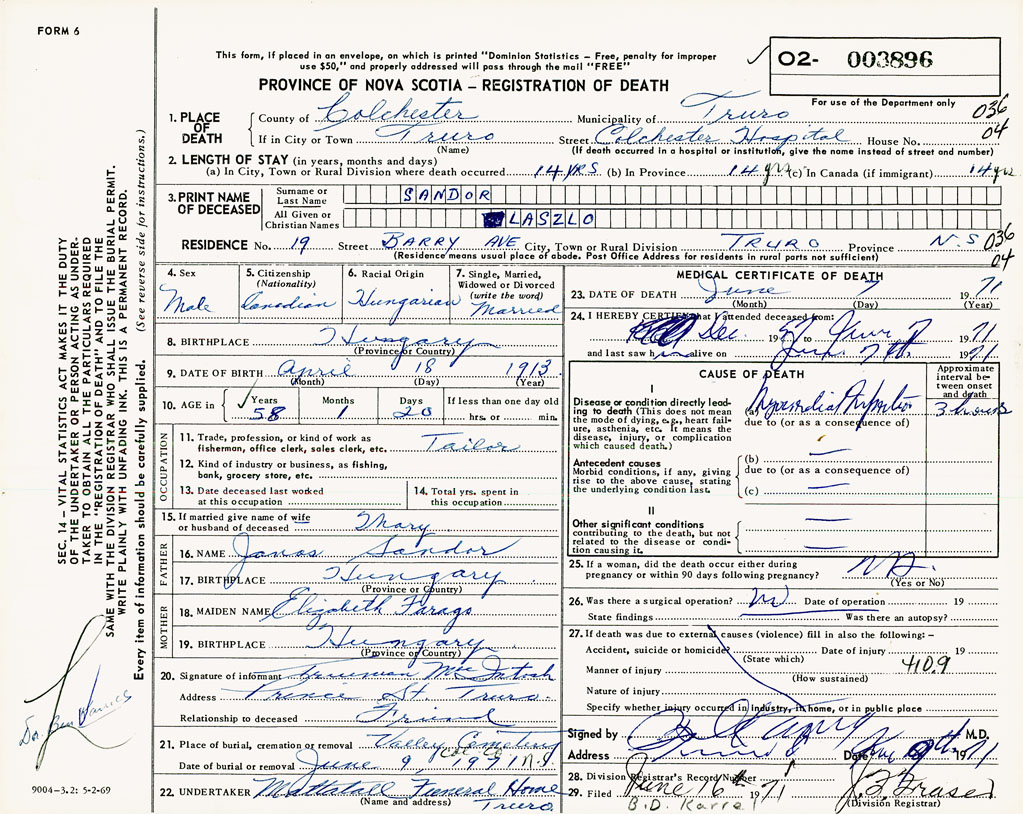 FORM 6
This form, if placed in an envelope, on which is printed "Dominion Statistics – Free, penalty for improper
use $50," and properly addressed will pass through the mail "FREE"
O2- 003896
For use of the Department only
PROVINCE OF NOVA SCOTIA – REGISTRATION OF DEATH
1. PLACE OF DEATH County of Colchester Municipality of Truro 036
If in City or Town Truro Street Colchester Hospital House No. 04
(Name) (If death occurred in a hospital or institution, give the name instead of street and number)
2. LENGTH OF STAY (in years, months and days)
(a) In City, Town or Rural Division where death occurred 14 YRS (b) In Province 14 yrs (c) In Canada (if immigrant) 14 yrs
3. PRINT NAME OF DECEASED Surname or Last Name SANDOR
All Given or Christian Names LASZLO
RESIDENCE No. 19 Street BARRY AVE City, Town or Rural Division TRURO Province N.S 036
(Residence means usual place of abode. Post Office Address for residents in rural parts not sufficient) 04
4. Sex Male
5. Citizenship (Nationality) Canadian
6. Racial Origin Hungarian
7. Single, Married, Widowed or Divorced (write the word) Married
8. BIRTHPLACE Hungary
(Province or Country)
9. DATE OF BIRTH April 18 1913
(Month) (Day) (Year)
10. AGE in Years 58 Months 1 Days 20 If less than one day old hrs. or min.
OCCUPATION
11. Trade, profession, or kind of work as fisherman, office clerk, sales clerk, etc. Tailor
12. Kind of industry or business, as fishing, bank, grocery store, etc.
13. Date deceased last worked at this occupation
14. Total yrs. spent in this occupation
15. If married give name of wife or husband of deceased Mary
FATHER
16. NAME Janos Sandor
17. BIRTHPLACE Hungary
(Province or Country)
MOTHER
18. MAIDEN NAME Elizabeth Farago
19. BIRTHPLACE Hungary
(Province or Country)
20. Signature of informant Trueman MacIntosh
Address Prince St. Truro.
Relationship to deceased Friend
21. Place of burial, cremation or removal Valley Cemetery
Col. Co.
Date of burial or removal June 9 1971 N.S.
22. UNDERTAKER Mattatall Funeral Home
(Name and address) Truro
MEDICAL CERTIFICATE OF DEATH
23. DATE OF DEATH June 7 1971
(Month) (Day) (Year)
24. I HEREBY CERTIFY that I attended deceased from:
Dec. 1957 to June 7 1971
and last saw him alive on June 7th 1971
CAUSE OF DEATH
Approximate interval between onset and death
I
Disease or condition directly leading to death (This does not mean the mode of dying, e.g., heart failure, asthenia, etc. It means the disease, injury, or complication which caused death.)
(a) Myocardial Infarction 3 hours
due to (or as a consequence of)
Antecedent causes
Morbid conditions, if any, giving rise to the above cause, stating the underlying condition last.
(b) —
due to (or as a consequence of)
(c) —
II
Other significant conditions
contributing to the death, but not related to the disease or condition causing it.
25. If a woman, did the death occur either during pregnancy or within 90 days following pregnancy?
(Yes or No)
26. Was there a surgical operation? No Date of operation 19
State findings Was there an autopsy?
27. If death was due to external causes (violence) fill in also the following: –
Accident, suicide or homicide? Date of injury 19
(State which) 410.9
Manner of injury
(How sustained)
Nature of injury
Specify whether injury occurred in industry, in home, or in public place
Signed by M.D.
Address Truro Date 1971
28. Division Registrar's Record Number
29. Filed June 16th 1971 J.F. Fraser
B.D. Karrel (Division Registrar)
SEC. 14 – VITAL STATISTICS ACT MAKES IT THE DUTY
OF THE UNDERTAKER OR PERSON ACTING AS UNDER-
TAKER TO OBTAIN ALL THE PARTICULARS REQUIRED
IN THE "REGISTRATION OF DEATH" AND TO FILE THE
SAME WITH THE DIVISION REGISTRAR WHO SHALL ISSUE THE BURIAL PERMIT.
WRITE PLAINLY WITH UNFADING INK. THIS IS A PERMANENT RECORD.
Every item of information should be carefully supplied. (See reverse side for instructions.)
Dr. Ben
9004-3.2: 5-2-69